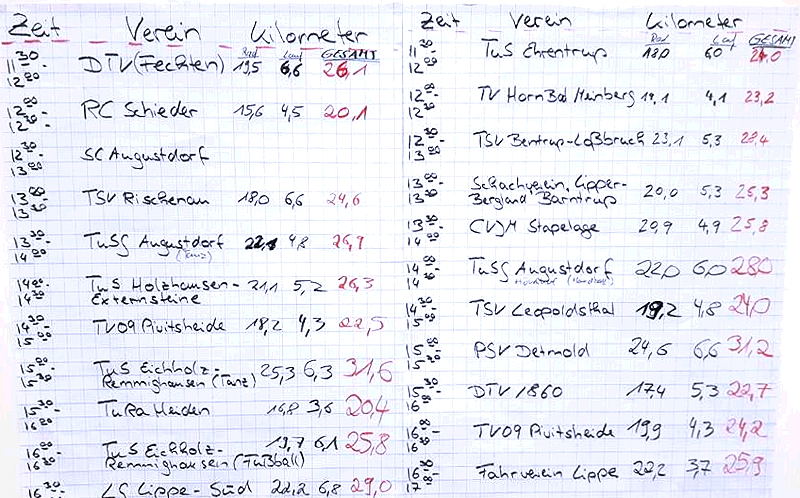 Zeit Verein Kilometer
Rad Lauf GESAMT
11 30 - 12 00 DTV (Fechten) 19,5 6,6 26,1
12 00 - 12 30 RC Schieder 15,6 4,5 20,1
12 30 - 13 00 SC Augustdorf
13 00 - 13 30 TSV Rischenau 18,0 6,6 24,6
13 30 - 14 00 TuSG Augustdorf 22,1 4,8 26,9
(Tanz)
14 00 - 14 30 TuS Holzhausen- 21,1 5,2 26,3
Externsteine
14 30 - 15 00 TV09 Pivitsheide 18,2 4,3 22,5
15 00 - 15 30 TuS Eichholz- 25,3 6,3 31,6
Remmighausen (Tanz)
15 30 - 16 00 TuRa Heiden 16,8 3,6 20,4
16 00 - 16 30 TuS Eichholz- 19,7 6,1 25,8
Remmighausen (Fußball)
16 30 LG Lippe-Süd 22,2 6,8 29,0
Zeit Verein Kilometer
Rad Lauf GESAMT
11 30 - 12 00 TuS Ehrentrup 18,0 6,0 24,0
12 00 - 12 30 TV Horn Bad Meinberg 19,1 4,1 23,2
12 30 - 13 00 TSV Bentrup-Loßbruch 23,1 5,3 28,4
13 00 - 13 30 Schachverein Lipper- 20,0 5,3 25,3
Bergland Barntrup
13 30 - 14 00 CVJM Stapelage 20,9 4,9 25,8
14 00 - 14 30 TuSG Augustdorf 22,0 6,0 28,0
14 30 - 15 00 TSV Leopoldsthal 19,2 4,8 24,0
15 00 - 15 30 PSV Detmold 24,6 6,6 31,2
15 30 - 16 00 DTV 1860 17,4 5,3 22,7
16 00 - 16 30 TV09 Pivitsheide 19,9 4,3 24,2
16 30 - 17 Fahrverein Lippe 22,2 3,7 25,9